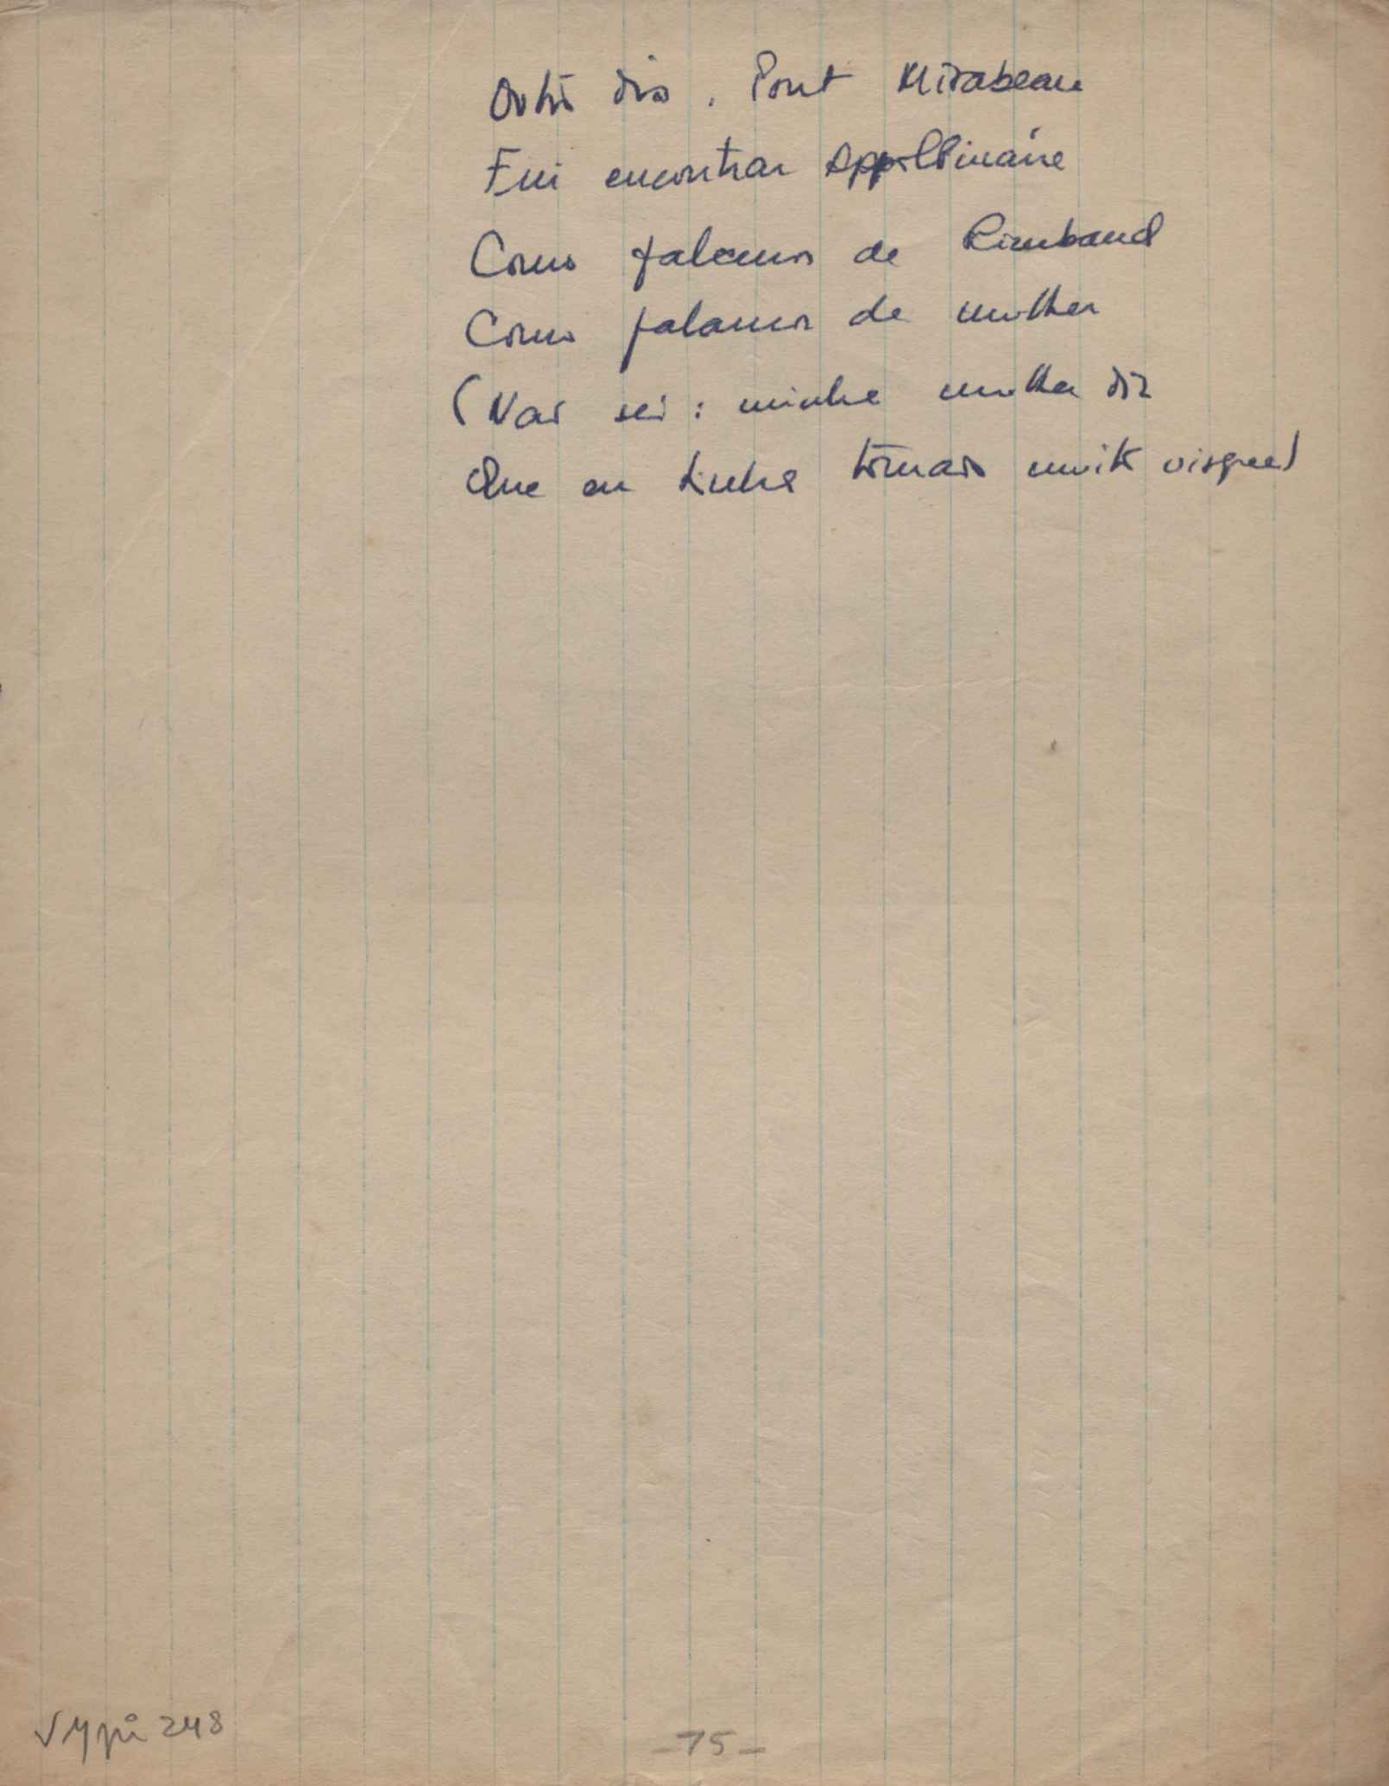 Outro dia, Pont Mirabeau
Fui encontrar Appollinaire
Como falamos de Rimbaud
Como falamos de mulher
(Não sei: minha mulher diz
Que eu tinha tomado muito uísque)
VMpi 248
-75-